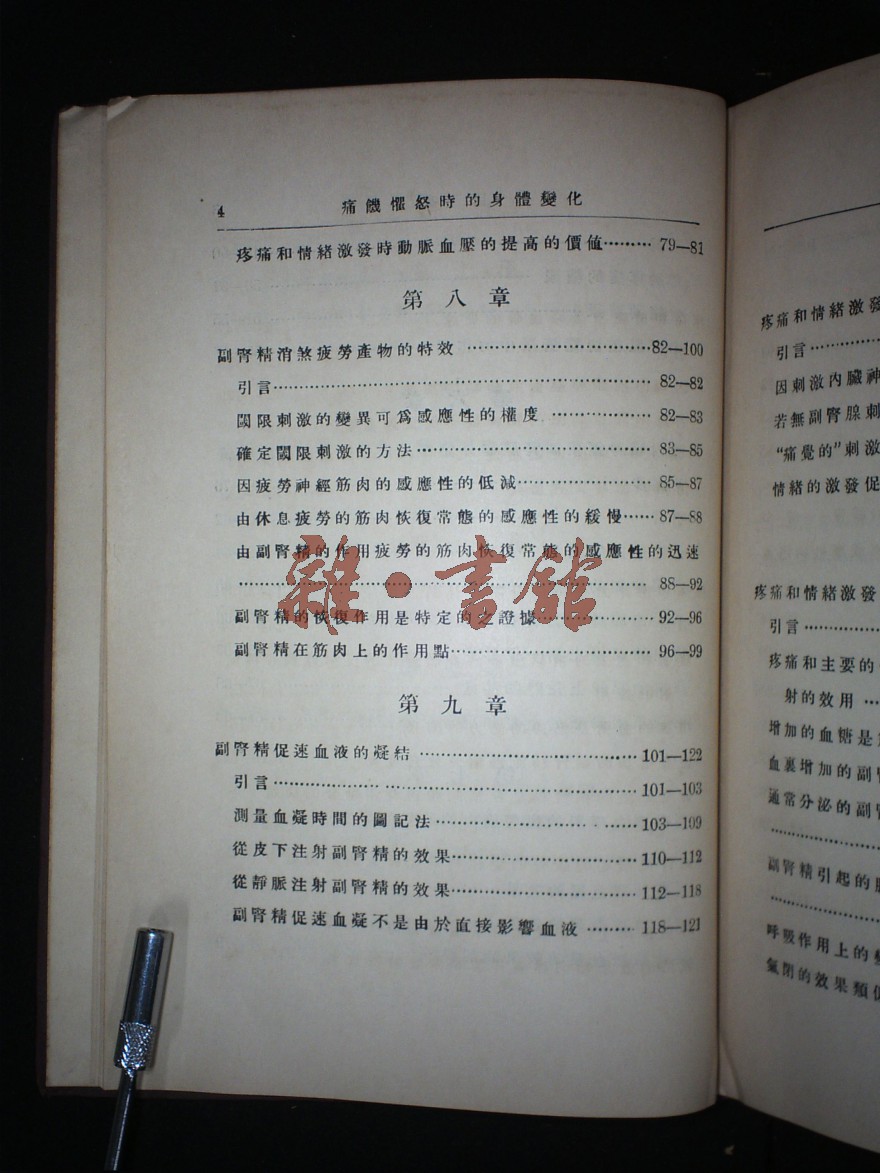 4 痛饑懼怒時的身體變化
疼痛和情緒激發時動脈血壓的提高的價值……… 79—81
第八章
副腎精消煞疲勞產物的特效 ……………………………82—100
引言………………………………………………………… 82—82
閾限刺激的變異可爲感應性的權度 ……………… 82—83
確定閾限刺激的方法…………………………………… 83—85
因疲勞神經筋肉的感應性的低減…………………… 85—87
由休息疲勞的筋肉恢復常態的感應性的緩慢…… 87—88
由副腎精的作用疲勞的筋肉恢復常態的感應性的迅速
……………………………………………………………… 88—92
副腎精的恢復作用是特定的之證據………………… 92—96
副腎精在筋肉上的作用點……………………………… 96—99
第九章
副腎精促速血液的凝結 ……………………………… 101—122
引言……………………………………………………… 101—103
測量血凝時間的圖記法……………………………… 103—109
從皮下注射副腎精的效果…………………………… 110—112
從靜脈注射副腎精的效果…………………………… 112—118
副腎精促速血凝不是由於直接影響血液 ……… 118—121
雜·書館
疼痛和情緒激發
引言…………
因刺激內臟神
若無副腎腺刺
“痛覺的”刺激
情緒的激發促
疼痛和情緒激發
引言…………
疼痛和主要的
射的效用 …
增加的血糖是
血裏增加的副腎
通常分泌的副腎
…………
副腎精引起的
…………
呼吸作用上的
氣閉的效果類似